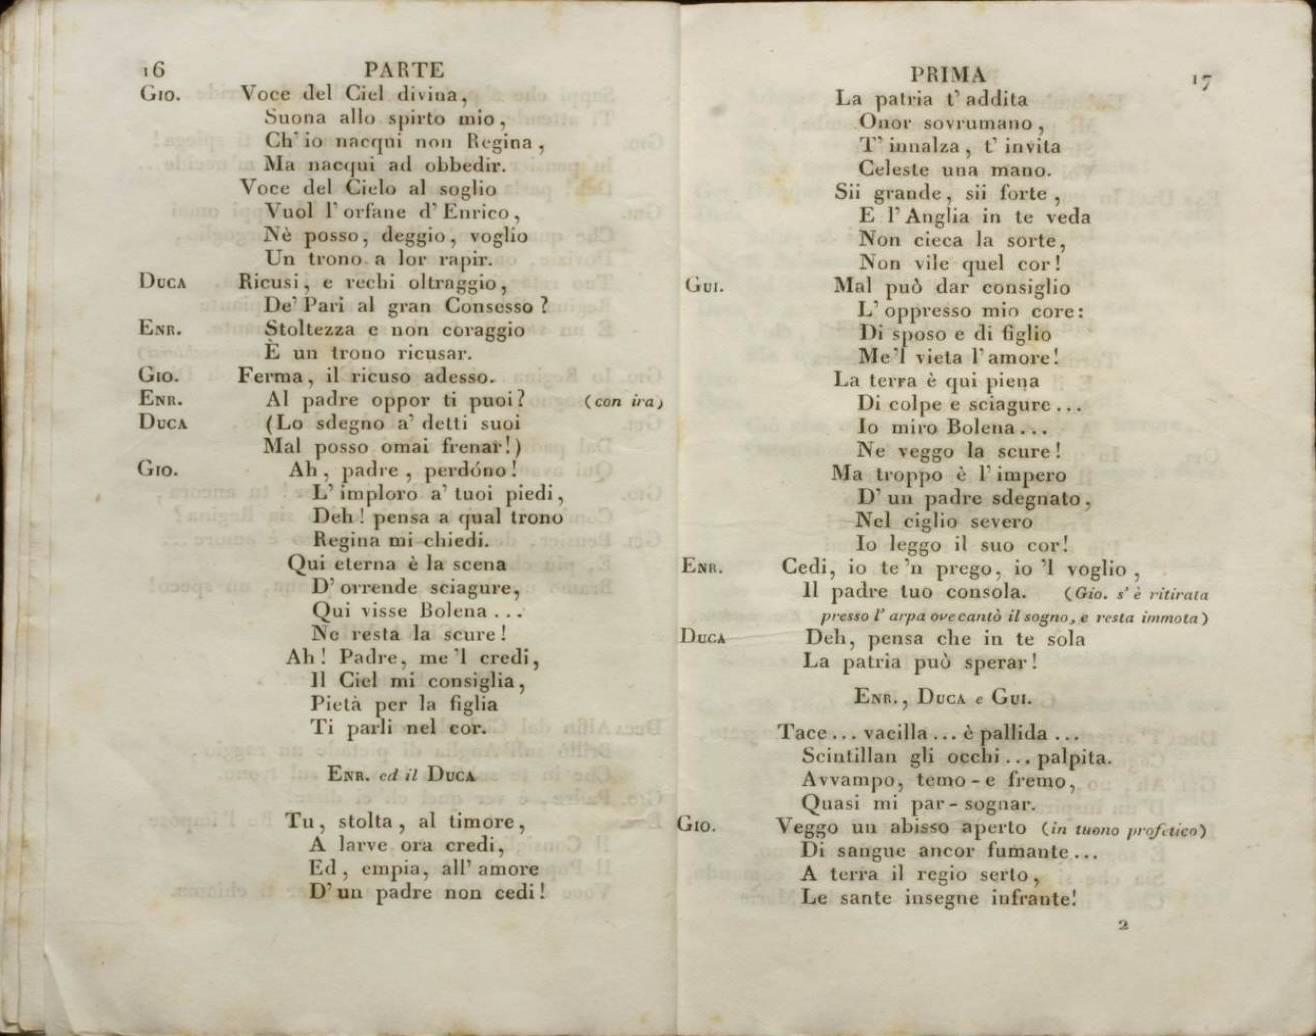 16 PARTE
GIO. Voce del Ciel divina,
Suona allo spirto mio,
Ch' io nacqui non Regina,
Ma nacqui ad obbedir.
Voce del Cielo al soglio
Vuol l' orfane d' Enrico,
Nè posso, deggio, voglio
Un trono a lor rapir.
DUCA Ricusi, e rechi oltraggio,
De' Pari al gran Consesso?
ENR. Stoltezza e non coraggio
È un trono ricusar.
GIO. Ferma, il ricuso adesso.
ENR. Al padre oppor ti puoi? (con ira)
DUCA (Lo sdegno a' detti suoi
Mal posso omai frenar!)
GIO. Ah, padre, perdóno!
L' imploro a' tuoi piedi,
Deh! pensa a qual trono
Regina mi chiedi.
Qui eterna è la scena
D' orrende sciagure,
Qui visse Bolena ...
Ne resta la scure!
Ah! Padre, me 'l credi,
Il Ciel mi consiglia,
Pietà per la figlia
Ti parli nel cor.
ENR. ed il DUCA
Tu, stolta, al timore,
A larve ora credi,
Ed, empia, all' amore
D' un padre non cedi!
PRIMA 17
La patria t' addita
Onor sovrumano,
T' innalza, t' invita
Celeste una mano.
Sii grande, sii forte,
E l' Anglia in te veda
Non cieca la sorte,
Non vile quel cor!
GUI. Mal può dar consiglio
L' oppresso mio core:
Di sposo e di figlio
Me 'l vieta l' amore!
La terra è qui piena
Di colpe e sciagure ...
Io miro Bolena ...
Ne veggo la scure!
Ma troppo è l' impero
D' un padre sdegnato,
Nel ciglio severo
Io leggo il suo cor!
ENR. Cedi, io te 'n prego, io 'l voglio,
Il padre tuo consola. (Gio. s' è ritirata
presso l' arpa ove cantò il sogno, e resta immota)
DUCA Deh, pensa che in te sola
La patria può sperar!
ENR., DUCA e GUI.
Tace ... vacilla ... è pallida ...
Scintillan gli occhi ... palpita.
Avvampo, temo - e fremo,
Quasi mi par - sognar.
GIO. Veggo un abisso aperto (in tuono profetico)
Di sangue ancor fumante ...
A terra il regio serto,
Le sante insegne infrante!
2